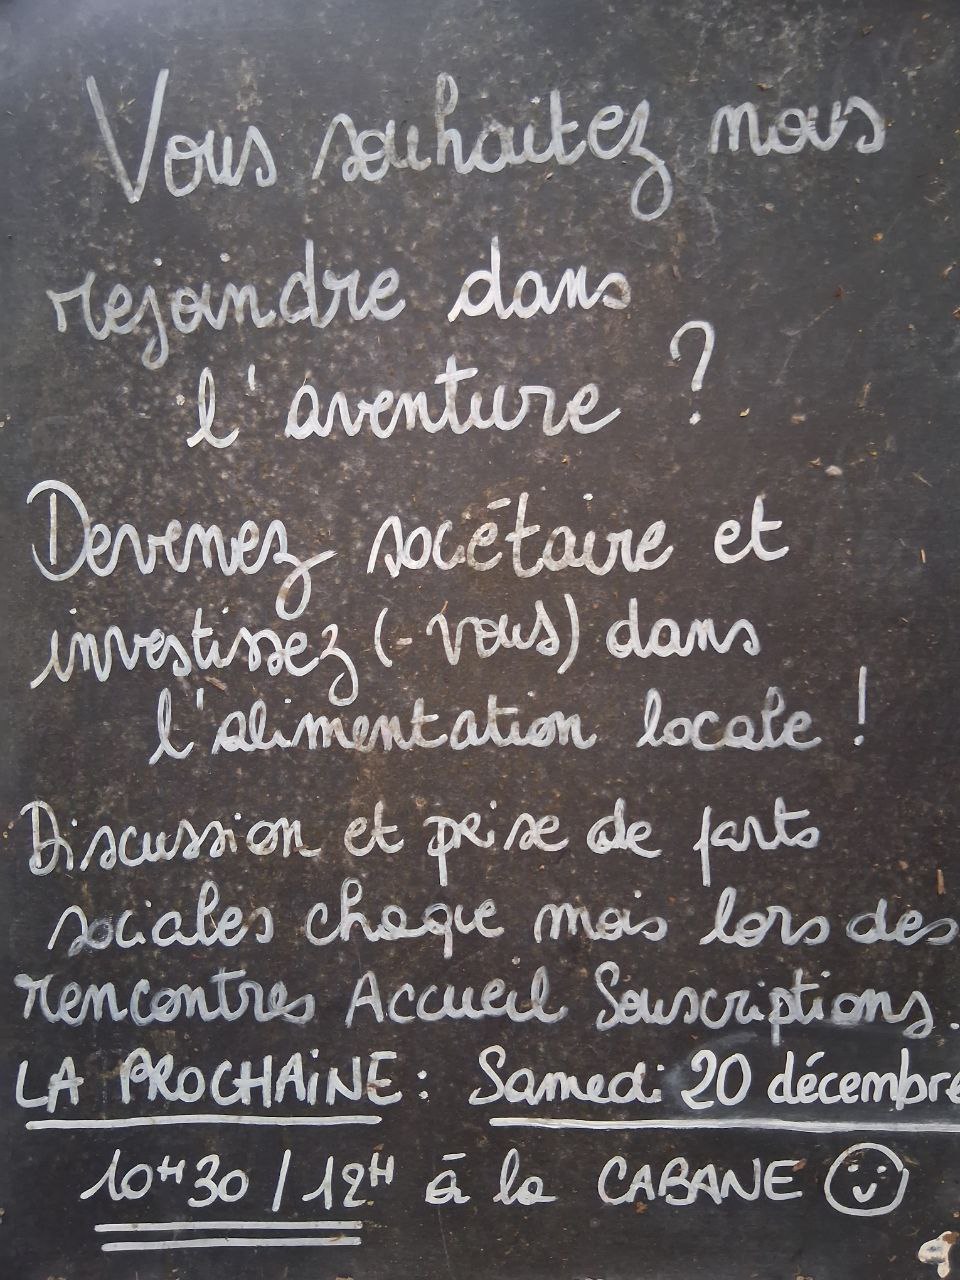 Vous souhaitez nous
rejoindre dans
l'aventure ?
Devenez socétaire et
investissez (-vous) dans
l'alimentation locale !
Discussion et prise de parts
sociales chaque mois lors des
rencontres Accueil Souscriptions.
LA PROCHAiNE : Samedi 20 décembre
10H30 / 12H à la CABANE